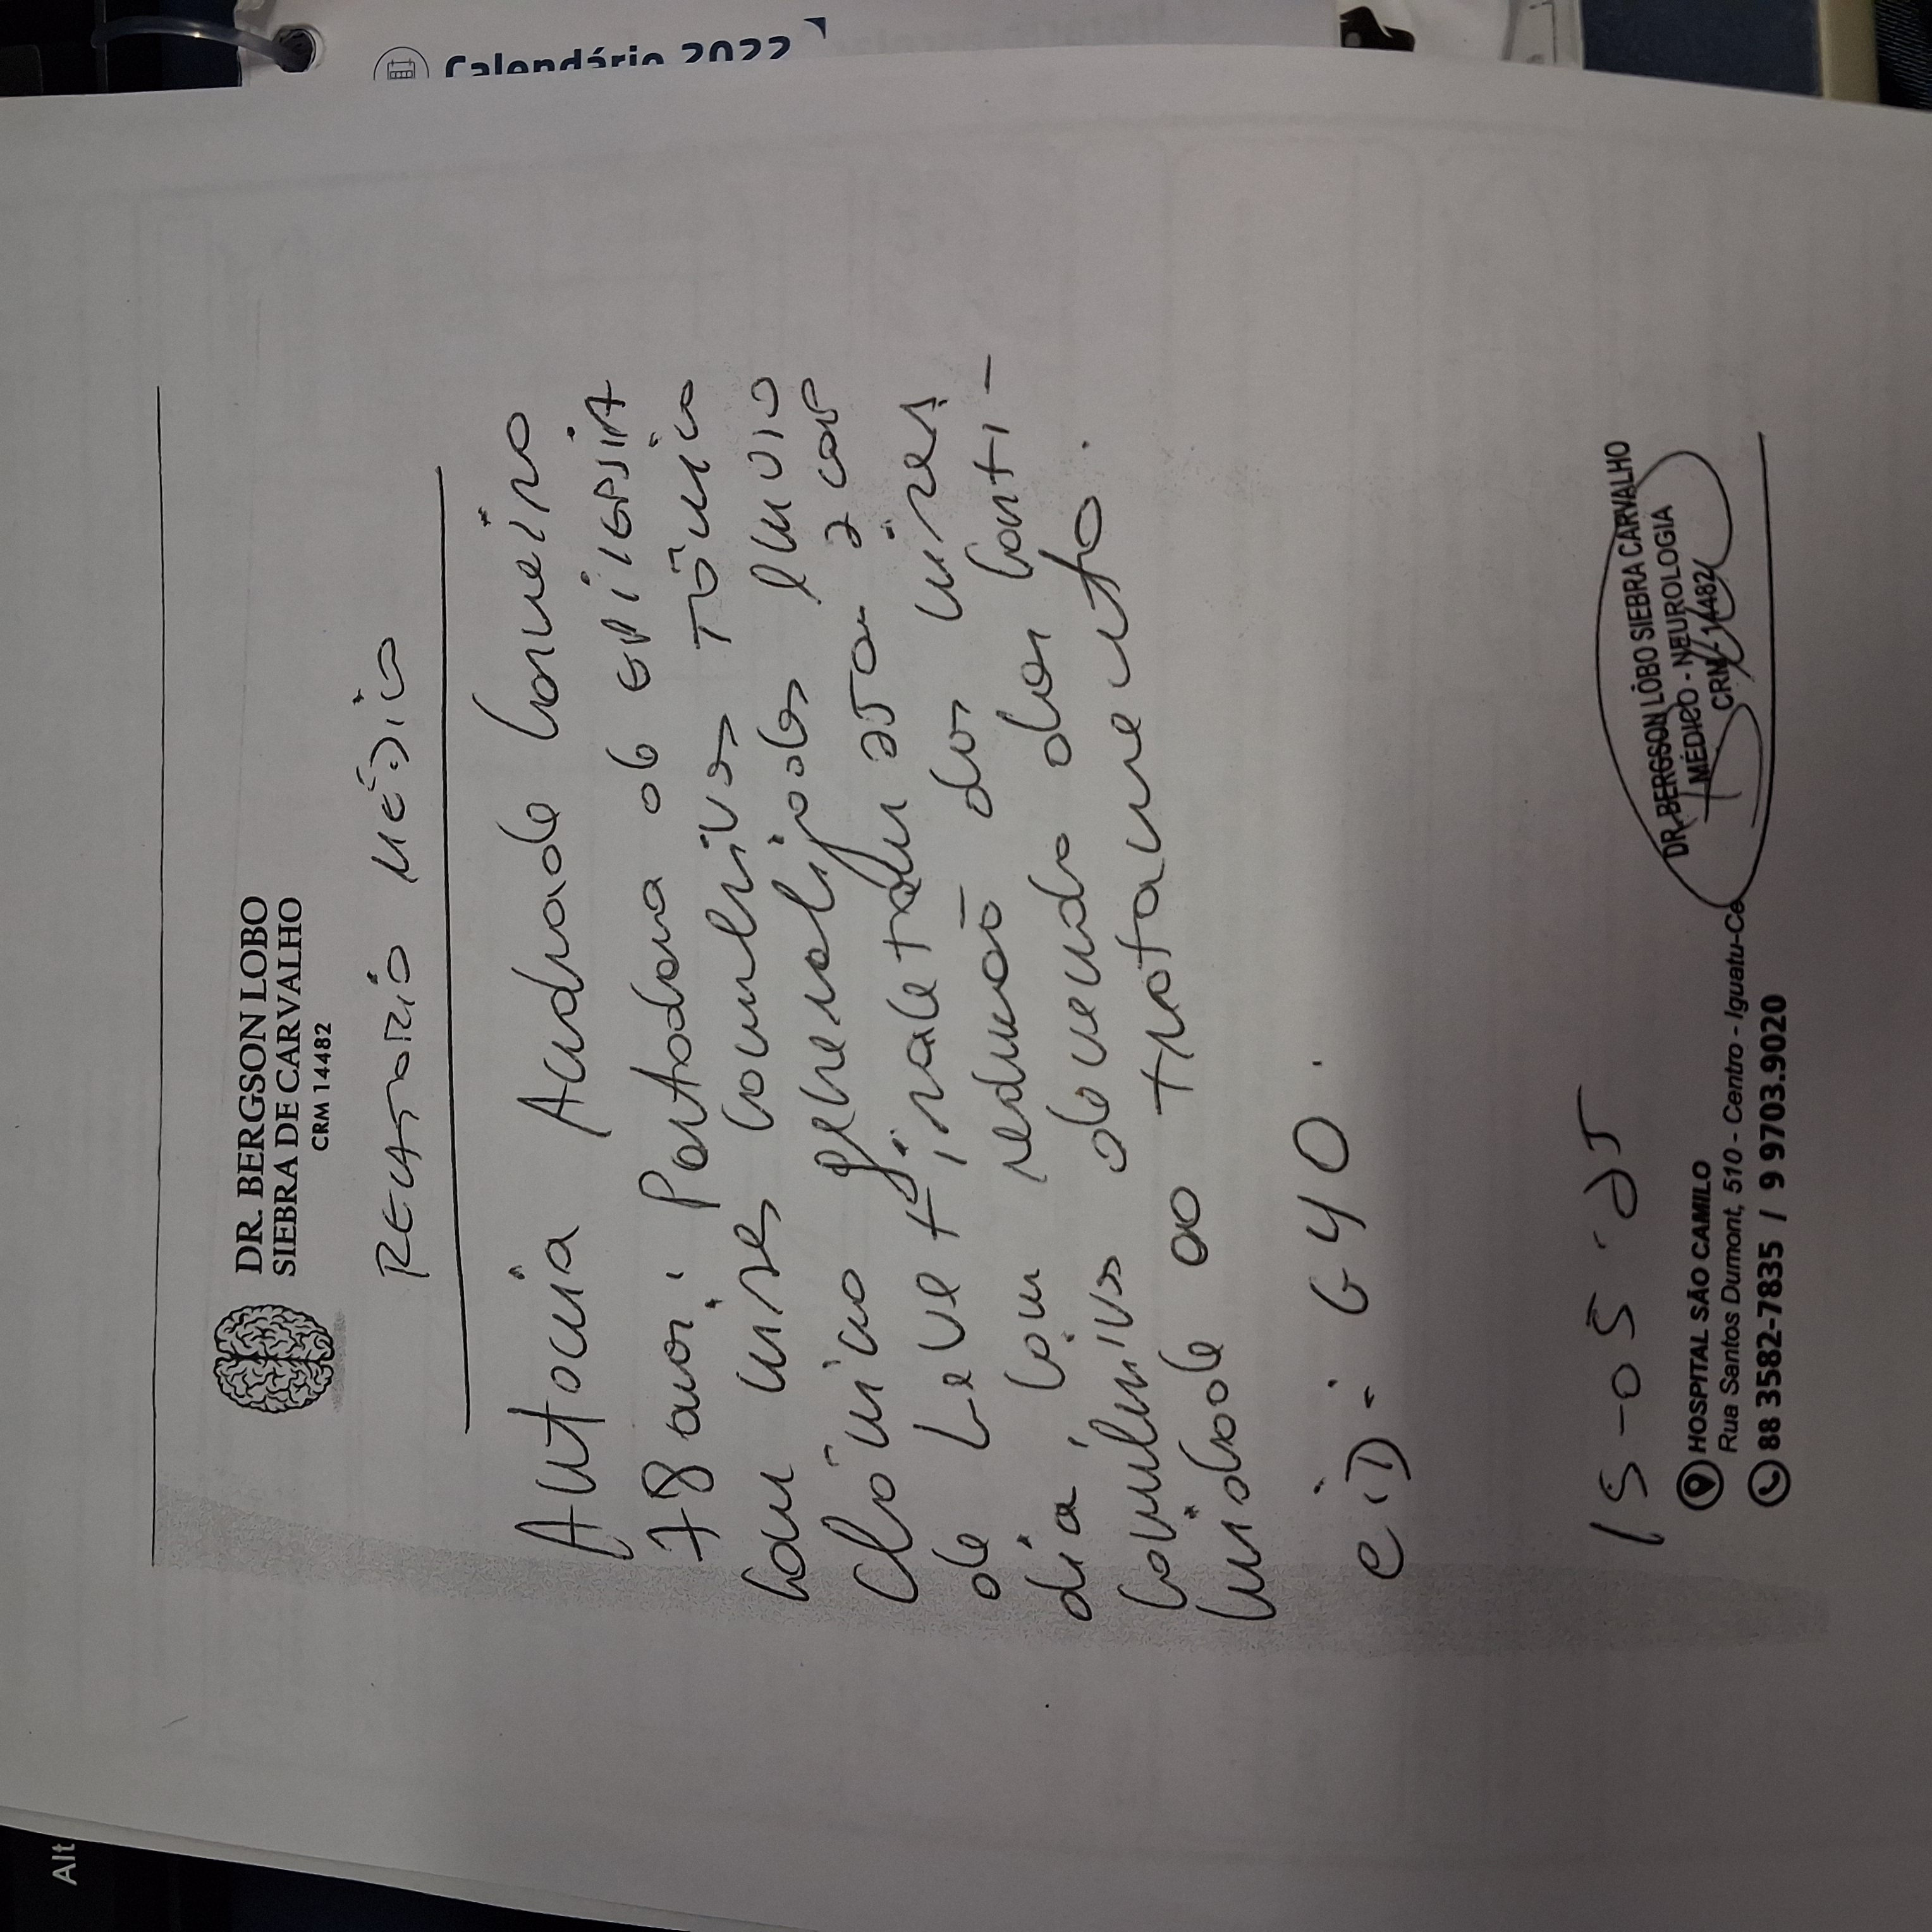 Alt
DR. BERGSON LOBO
SIEBRA DE CARVALHO
CRM 14482
RELATORIO MÉDICO
Antonia Andrade Carneiro
78 anos. Portadora de EPILEPSIA
com crises convulsivas tônico
clônico generalizadas em uso
de Levetiracetam 250 2
dia, com redução das crises
convulsivas devendo dar conti-
nuidade ao tratamento.
CiD: G40.
15-05-25
HOSPITAL SÃO CAMILO
Rua Santos Dumont, 510 - Centro - Iguatu-Ce
88 3582-7835 / 9 9703.9020
DR. BERGSON LÔBO SIEBRA CARVALHO
MÉDICO - NEUROLOGIA
CRM - 14482
Calendário 2022